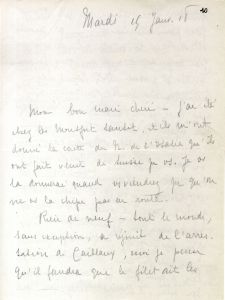 Mardi 15 Janv. 18
Mon bon mari chéri – j'ai été
chez les Montfort samedi, et ils m'ont
donné la carte du N. de l'Italie qu'ils
ont fait venir de Suisse pr vs. Je vs
la donnerai quand vs viendrez, pr qu'on
ne vs la chipe pas en route.
Rien de neuf – tout le monde,
sans exception, se réjouit de l'arres-
tation de Caillaux, mais je pense
qu'il faudra que le filet ait les